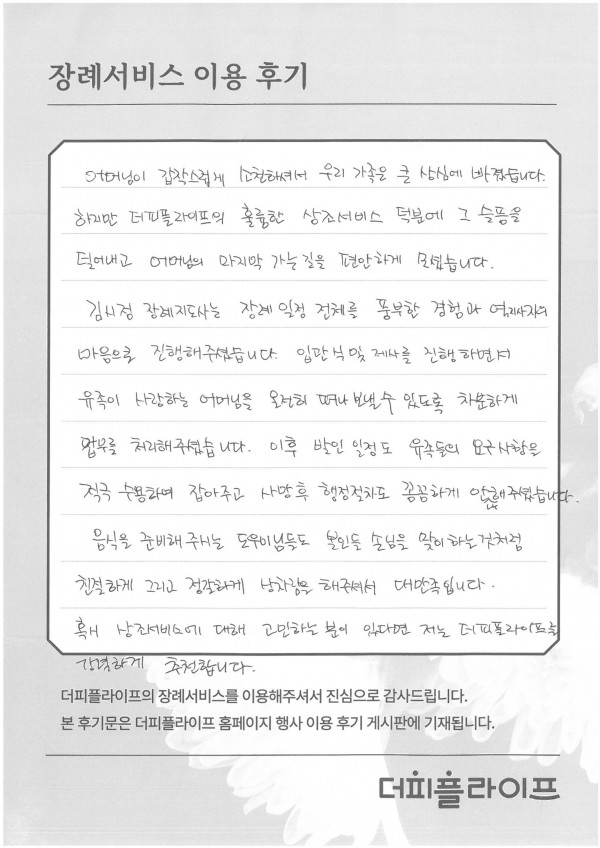 장례서비스 이용 후기
어머님이 갑작스럽게 소천하셔서 우리 가족은 큰 상심에 빠졌습니다.
하지만 더피플라이프의 훌륭한 상조서비스 덕분에 그 슬픔을
덜어내고 어머님의 마지막 가는 길을 편안하게 모셨습니다.
김시점 장례지도사는 장례 일정 전체를 풍부한 경험과
마음으로 진행해주셨습니다. 입관식 및 제사를 진행하면서
유족이 사랑하는 어머님을 온전히 떠나 보낼 수 있도록 차분하게
업무를 처리해주셨습니다. 이후 발인 일정도 유족들의 요구사항을
적극 수용하며 잡아주고 사망후 행정절차도 꼼꼼하게 안내해주셨습니다.
음식을 준비해 주시는 도우미님들도 본인들 손님을 맞이하는것처럼
친절하게 그리고 정갈하게 상차림을 해주셔서 대만족입니다.
혹시 상조서비스에 대해 고민하는 분이 있다면 저는 더피플라이프를
강력하게 추천합니다.
더피플라이프의 장례서비스를 이용해주셔서 진심으로 감사드립니다.
본 후기문은 더피플라이프 홈페이지 행사 이용 후기 게시판에 기재됩니다.
더피플라이프